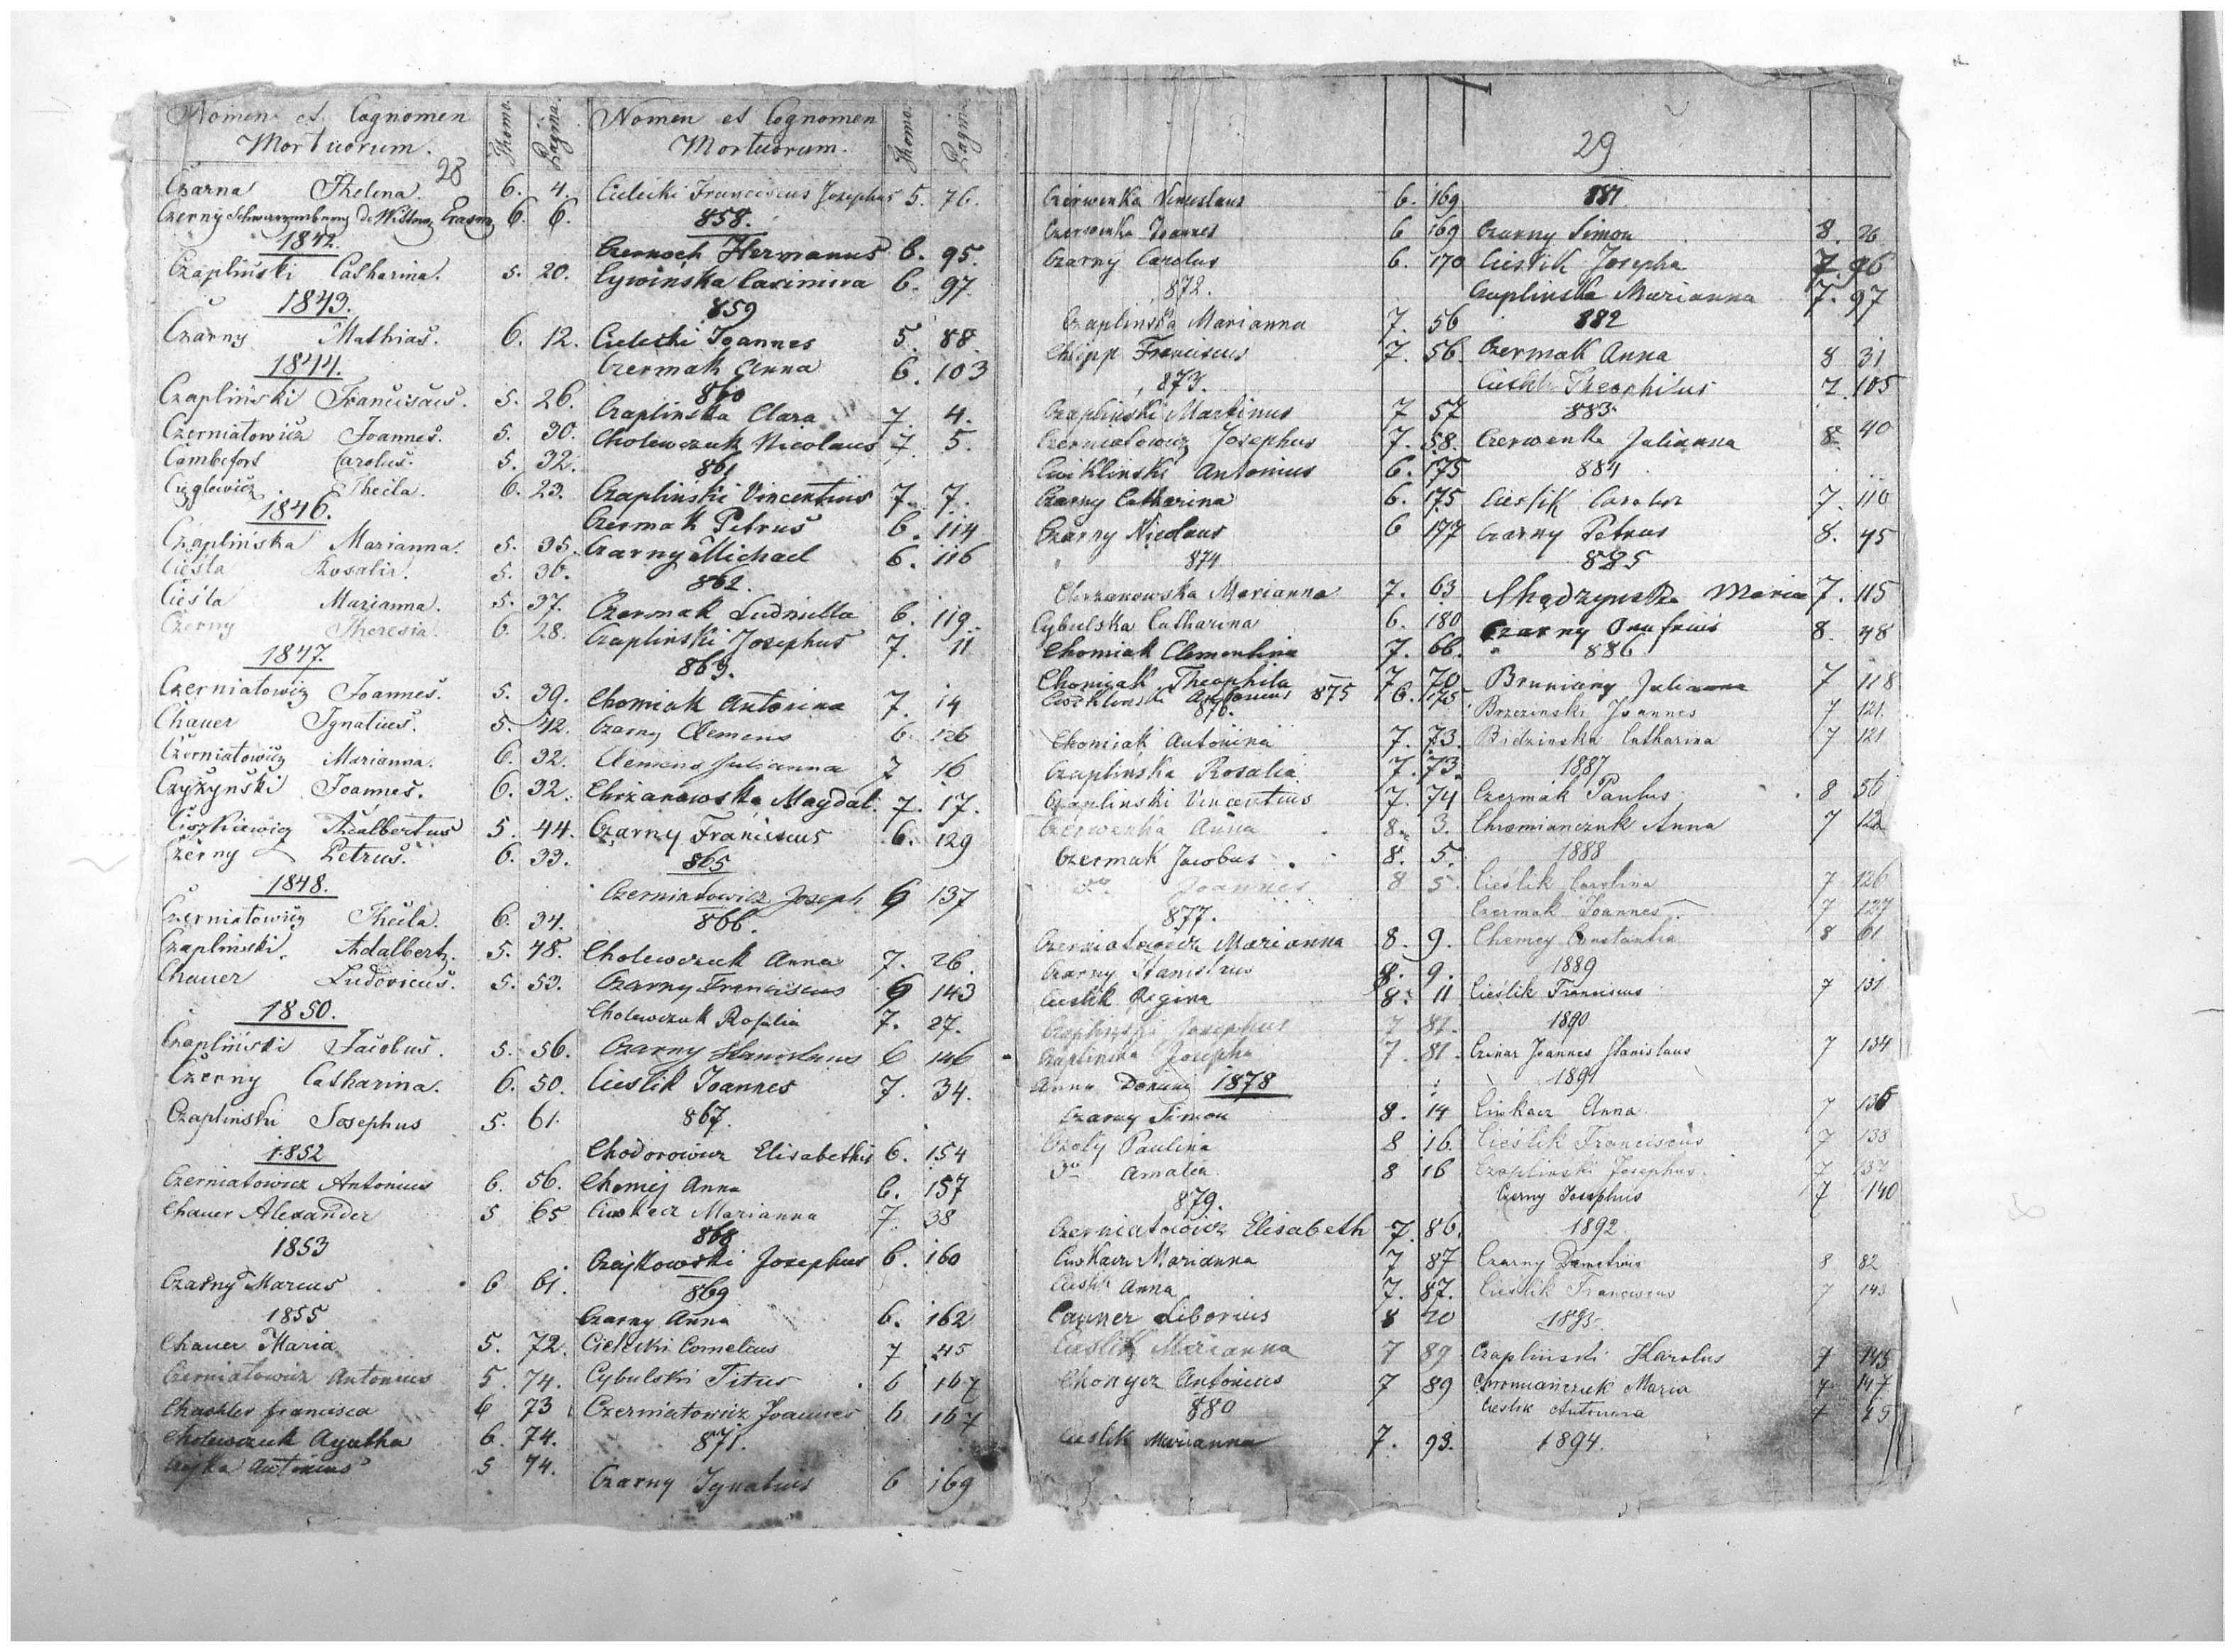 Nomen et Cognomen
Mortuorum.
Thomo.
Pagina.
28
Czarna Thelena. 6. 4.
Czerny Schwarzenberg de 6. 6.
1842.
Czapliński Catharina. 5. 20.
1843.
Czarny Mathias. 6. 12.
1844.
Czapliński Franciscus. 5. 26.
Czerniatowicz Joannes. 5. 30.
Cambefort Carolus. 5. 32.
Thecla. 6. 23.
1846.
Czaplińska Marianna. 5. 35.
Cieśla Rosalia. 5. 36.
Cieśla Marianna. 5. 37.
Czerny Theresia. 6. 28.
1847.
Czerniatowicz Joannes. 5. 39.
Chauer Ignatius. 5. 42.
Czerniatowicz Marianna. 6. 32.
Czyżyński Joannes. 6. 32.
Ciszkiewicz Adalbertus 5. 44.
Czerny Petrus. 6. 33.
1848.
Czerniatowicz Thecla. 6. 34.
Czapliński Adalbert. 5. 48.
Chauer Ludovicus. 5. 53.
1850.
Czapliński Jacobus. 5. 56.
Czerny Catharina. 6. 50.
Czapliński Josephus 5. 61.
1852
Czerniatowicz Antonius 6. 56.
Chauer Alexander 5 65
1853
Czarny Marcus 6 61.
1855
Chauer Maria 5. 72.
Czerniatowicz Antonius 5. 74.
Francisca 6 73
Cholewczuk Agatha 6. 74.
Czyka Antonius 5 74.
Nomen et Cognomen
Mortuorum.
Thomo.
Pagina.
Cielecki Franciscus Josephus 5. 76.
858.
Czernoch Hermanus 6. 95.
Cywińska Casimira 6. 97.
859
Cielecki Joannes 5. 88.
Czermak Anna 6. 103
860
Czaplińska Clara 7. 4.
Cholewczuk Nicolaus 7. 5.
861
Czapliński Vincentius 7. 7.
Czermak Petrus 6. 114
Czarny Michael 6. 116
862.
Czermak Ludmilla 6. 119.
Czapliński Josephus 7. 11
863.
Chomiak Antonina 7. 14
Czarny Clemens 6. 126
Clemens Julianna 7 16
Chrzanowska Magdal. 7. 17.
Czarny Franciscus 6. 129
865
Czerniatowicz Joseph 6 137
866.
Cholewczuk Anna 7. 26.
Czarny Franciscus 6 143
Cholewczuk Rosalia 7. 27.
Czarny Stanislaus 6 146
Cieslik Joannes 7. 34.
867.
Chodorowicz Elisabetha 6. 154
Chomej Anna 6. 157
Ciwkacz Marianna 7. 38
868
Czajkowski Josephus 6. 160
869
Czarny Anna 6. 162
Cielecki Cornelius 7 45
Cybulski Titus 6 167
Czerniatowicz Joannes 6 167
871.
Czarny Ignatius 6 169
Czerwenka Venceslaus 6. 169
Czerwenka Joannes 6 169
Czarny Carolus 6. 170
872.
Czaplinska Marianna 7. 56
Franciscus 7. 56.
873.
Czapliński Martinus 7 57
Czerniatowicz Josephus 7. 58.
Cwikliński Antonius 6. 175
Czarny Catharina 6. 175
Czarny Nicolaus 6 177
874
Chrzanowska Marianna 7. 63
Cybulska Catharina 6. 180
Chomiak Clementina 7. 66.
Chomiak Theophila 7 70
Antonius 875 6. 175
876.
Chomiak Antonina 7. 73.
Czaplinska Rosalia 7. 73.
Czaplinski Vincentius 7. 74
Czerwenka Anna 8. 3.
Czermak Jacobus 8. 5.
do Joannes 8 5.
877.
Czerniatowicz Marianna 8. 9.
Czarny Stanislaus 8. 9.
Cieslik Regina 8. 11
Czaplinski Josephus 7 81.
Czaplinska Josepha 7. 81.
Anno Domini 1878
Czarny Simon 8. 14
Paulina 8 16.
do Amalia 8 16
879.
Czerniatowicz Elisabeth 7. 86.
Ciwkacz Marianna 7 87
Anna 7. 87.
Cauner Liborius 8 20
Cieślik Marianna 7 89
Chonycz Antonius 7 89
880
Cieslik Marianna 7. 93.
29
881
Czarny Simon 8. 26
Cieslik Josepha 7. 96
Czaplinska Marianna 7. 97
882
Czermak Anna 8 31
Theophilus 7. 105
883.
Czerwenka Julianna 8. 40
884
Cieslik 7. 110
Czarny Petrus 8. 45
885
Chądzyńska Maria 7. 115
Czarny Onufrius 8. 48
886
Julianna 7 118
Brzezinski Joannes 7 121.
Bidzinska Catharina 7 121
1887
Czermak Paulus 8 56
Chromianczuk Anna 7 122
1888
Cieślik Carolina 7 126
Czermak Joannes 7 127
Chemey Constantia 8 61
1889
Cieślik Franciscus 7 131
1890
Czinar Joannes Stanislaus 7 134
1891
Ciwkacz Anna 7 136
Cieślik Franciscus 7 138
Czaplinski Josephus. 7 137
Czerny Josephus 7 140
1892
Czarny Demetrius 8 82
Cieślik Franciscus 7 143
1893.
Czapliński Karolus 7 145
Chromiańczuk Maria 7 147
Cieslik Antonina
1894.